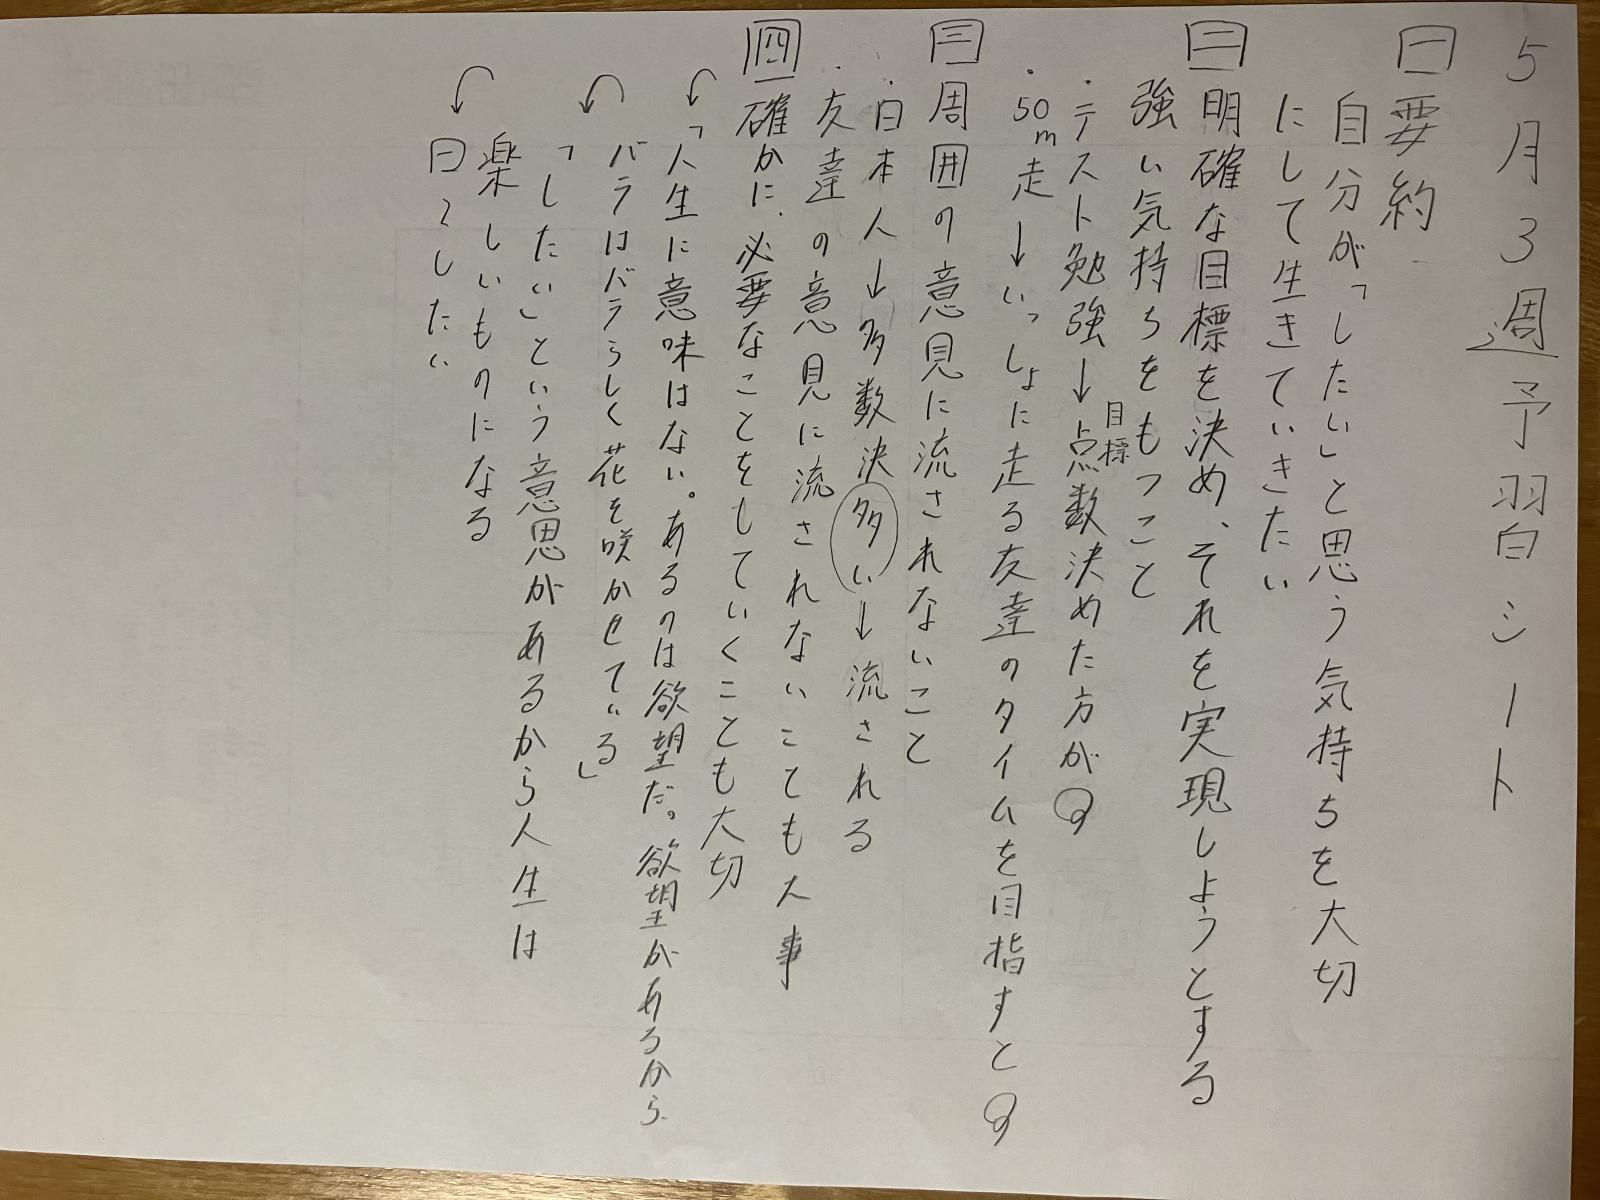 5月3週予習シート
一 要約
自分が「したい」と思う気持ちを大切
にして生きていきたい
二 明確な目標を決め、それを実現しようとする
強い気持ちをもつこと
・テスト勉強→点数決めた方が
目標
・50m走→いっしょに走る友達のタイムを目指すと
三 周囲の意見に流されないこと
・日本人→多数決多い→流される
・友達の意見に流されないことも大事
四 確かに、必要なことをしていくことも大切
「人生に意味はない。あるのは欲望だ。欲望があるから
バラはバラらしく花を咲かせている」
「したい」という意思があるから人生は
楽しいものになる
日々したい